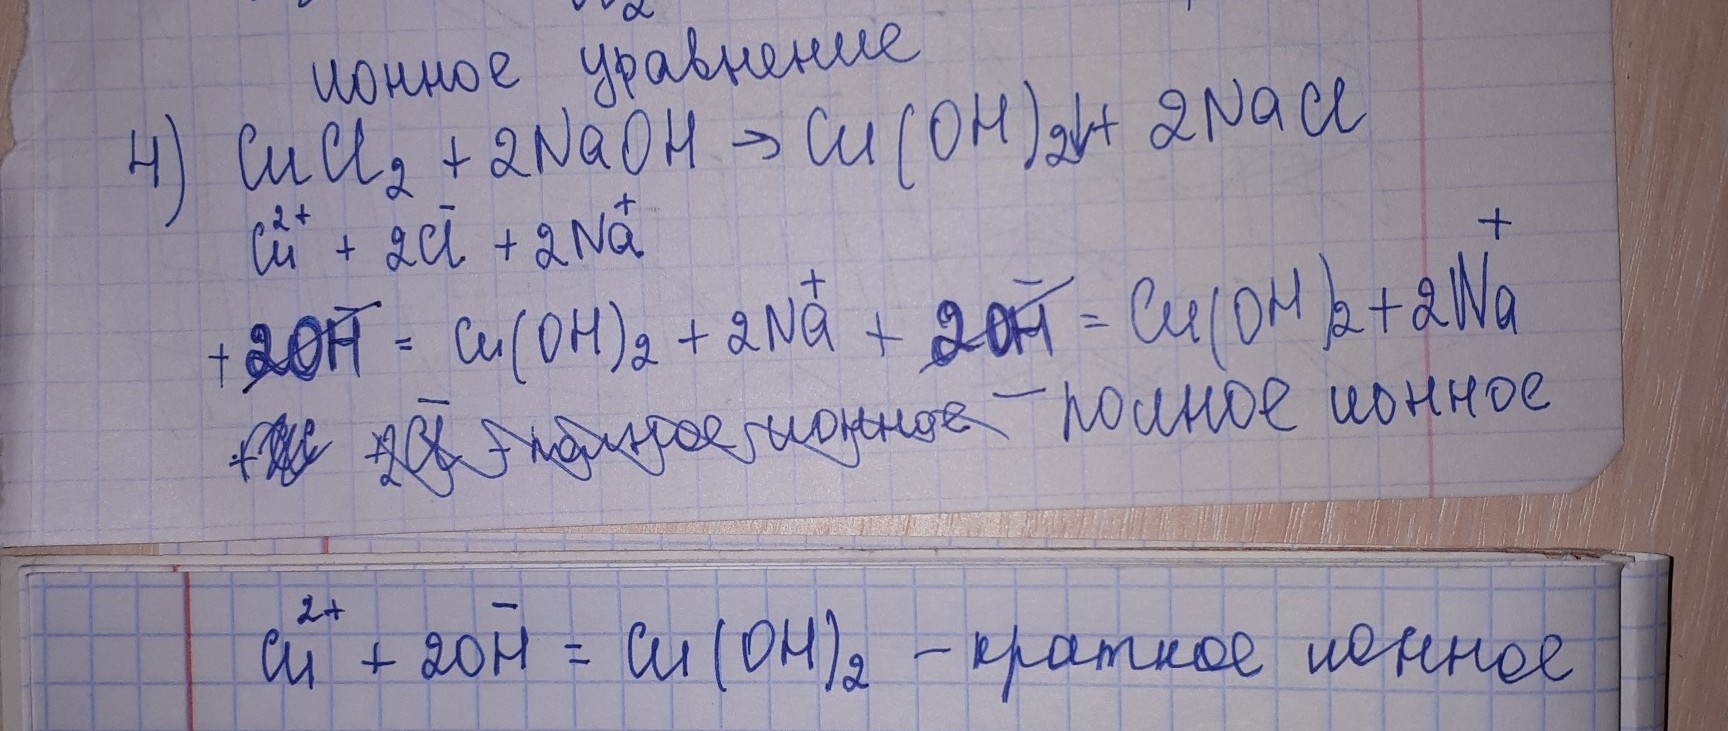 ионное уравнение
4) CuCl₂ + 2NaOH → Cu(OH)₂↓ + 2NaCl
Cu²⁺ + 2Cl⁻ + 2Na⁺
+ 2OH⁻ = Cu(OH)₂ + 2Na⁺ + 2OH⁻ = Cu(OH)₂ + 2Na⁺
+ 2Cl⁻ - полное ионное - полное ионное
Cu²⁺ + 2OH⁻ = Cu(OH)₂ - краткое ионное